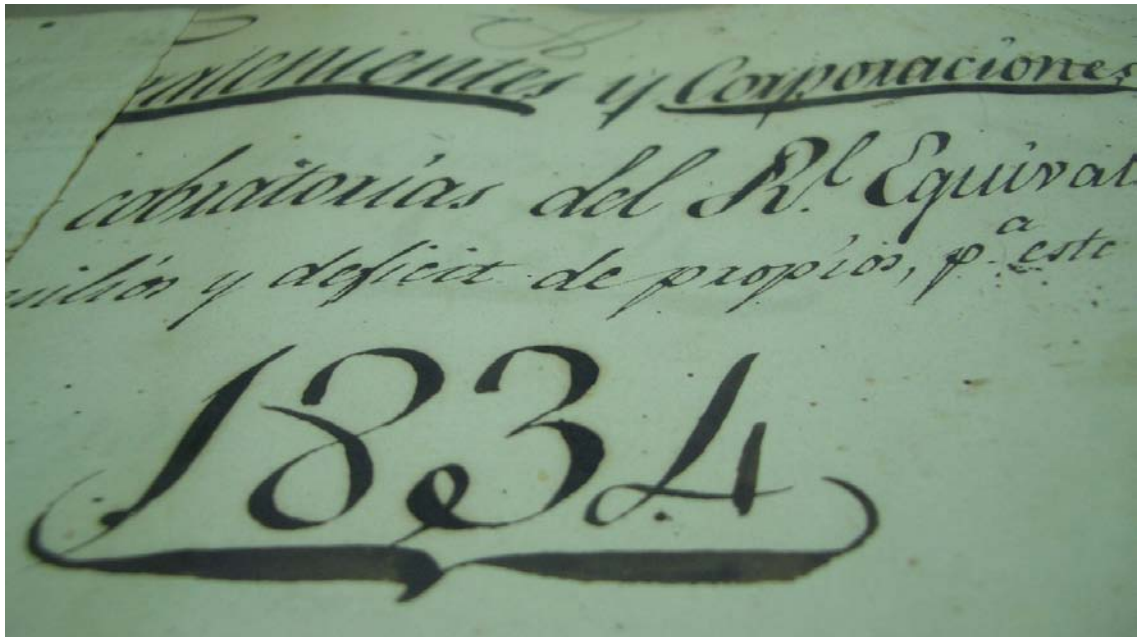 y Corporaciones
cobratorias del R.l Equival
y deficit de propios, p.a este
1834